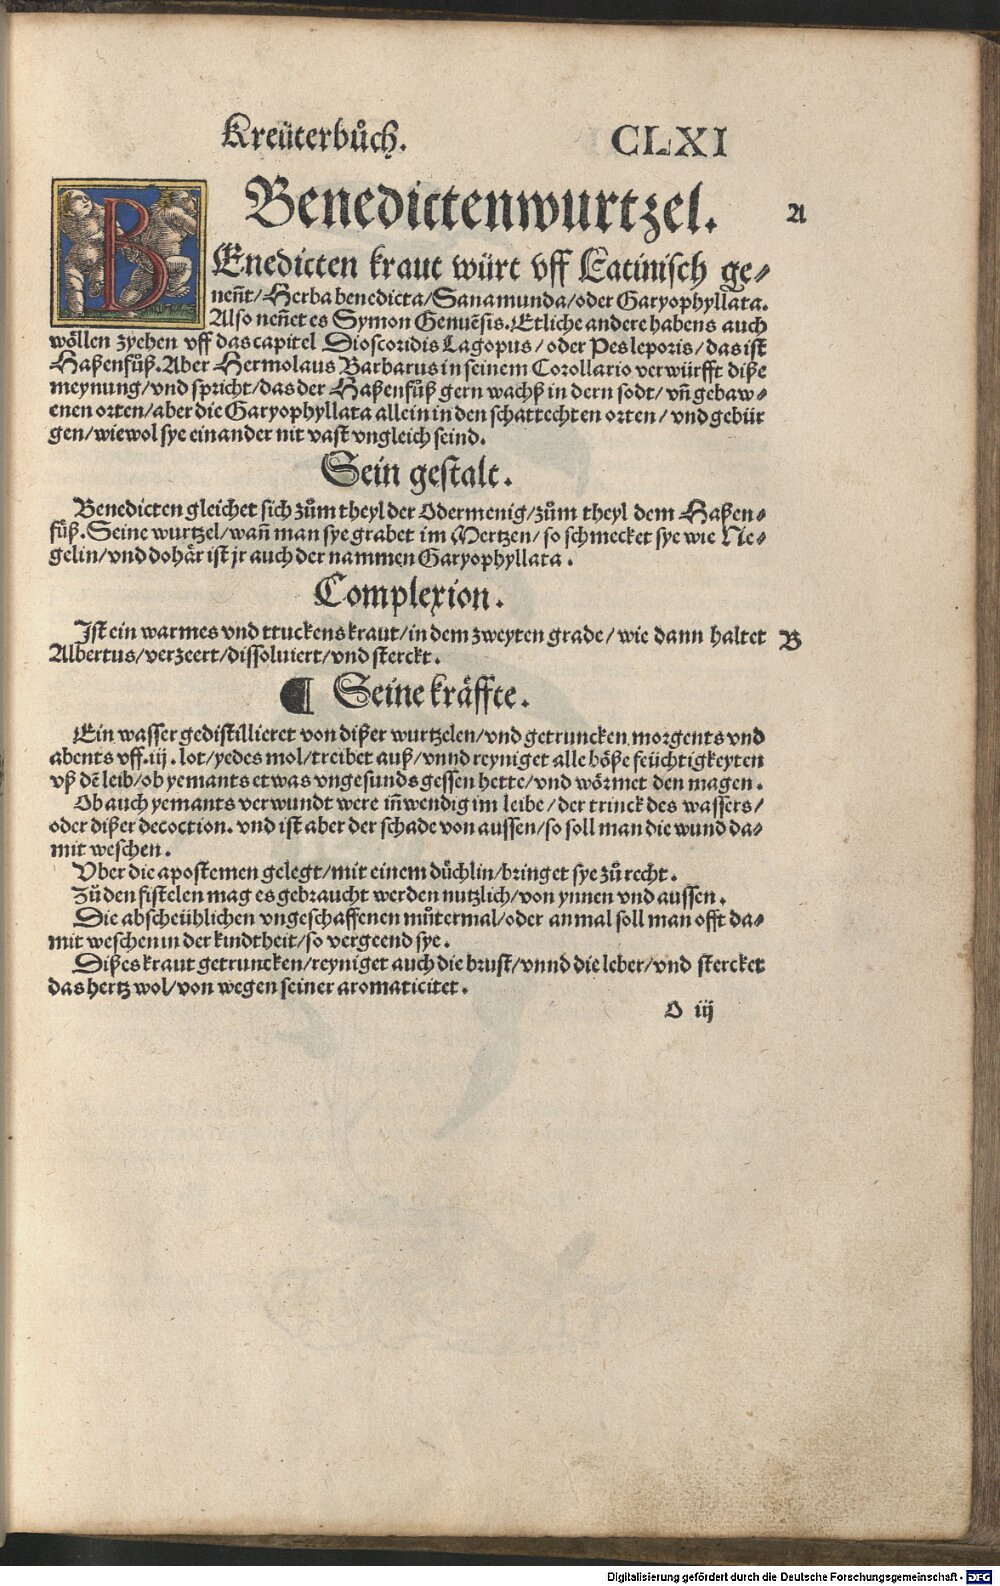 Kreüterbůch. CLXI
Benedictenwurtzel. A
BEnedicten kraut würt vff Latinisch ge⸗
neñt/Herba benedicta/Sanamunda/oder Garyophyllata.
Also neñet es Symon Genuẽsis. Etliche andere habens auch
wöllen zyehen vff das capitel Dioscoridis Lagopus/oder Pes leporis/das ist
Haßenfůß. Aber Hermolaus Barbarus in seinem Corollario verwürfft diße
meynung/vnd spricht/das der Haßenfůß gern wachß in dern sodt/vñ gebaw⸗
enen orten/aber die Garyophyllata allein in den schattechten orten/vnd gebür
gen/wiewol sye einander nit vast vngleich seind.
Sein gestalt.
Benedicten gleichet sich zům theyl der Odermenig/zům theyl dem Haßen⸗
fůß. Seine wurtzel/wañ man sye grabet im Mertzen/so schmecket sye wie Ne⸗
gelin/vnd dohår ist jr auch der nammen Garyophyllata.
Complexion.
Ist ein warmes vnd truckens kraut/in dem zweyten grade/wie dann haltet B
Albertus/verzeert/dissoluiert/vnd sterckt.
¶ Seine kräffte.
Ein wasser gedistillieret von dißer wurtzelen/vnd getruncken morgents vnd
abents vff.iij.lot/yedes mol/treibet auß/vnnd reyniget alle böße feüchtigkeyten
vß dẽ leib/ob yemants etwas vngesunds gessen hette/vnd wörmet den magen.
Ob auch yemants verwundt were iñwendig im leibe/der trinck des wassers/
oder dißer decoction. vnd ist aber der schade von aussen/so soll man die wund da⸗
mit weschen.
Vber die apostemen gelegt/mit einem düchlin/bringet sye zů recht.
Zů den fistelen mag es gebraucht werden nutzlich/von ynnen vnd aussen.
Die abscheühlichen vngeschaffenen můtermal/oder anmal soll man offt da⸗
mit weschen in der kindtheit/so vergeend sye.
Dißes kraut getruncken/reyniget auch die brust/vnnd die leber/vnd stercket
das hertz wol/von wegen seiner aromaticitet.
O iij
Digitalisierung gefördert durch die Deutsche Forschungsgemeinschaft - DFG